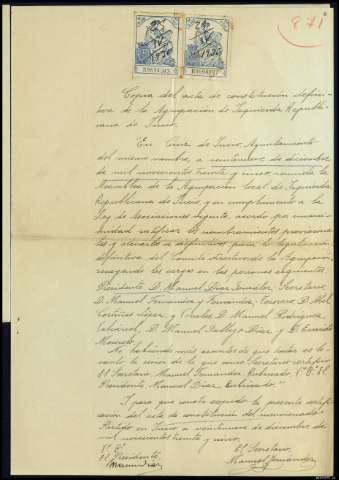 871
Copia del acta de constitución defini-
tiva de la Agrupación de Izquierda Republi-
cana de Incio.
"En Cruz de Incio, Ayuntamiento
del mismo nombre, a veintinueve de diciembre
de mil novecientos treinta y cinco, reunida la
Asamblea de la Agrupación local de Izquierda
Republicana de Incio y en cumplimiento a la
Ley de Asociaciones vigente, acordó por unani-
midad ratificar los nombramientos provisionales
y elevarlos a definitivos para la legalización
definitiva del Comité directivo de la Agrupación,
recayendo los cargos en las personas siguientes:
Presidente, D. Manuel Díaz González; Secretario,
D. Manuel Fernández y Fernández; Tesorero, D. Abel
López y Vocales D. Manuel Rodríguez
D. Manuel Vallejo Díaz y D.
No habiendo más acuerdo de que tratar se le-
vantó la sesión de la que como Secretario certifico.
El Secretario, Manuel Fernández. Rubricado. V.º B.º El
Presidente Manuel Díaz. Rubricado."
Y para que conste expido la presente certifi-
cación del acta de constitución del mencionado
Partido en Incio a veintinueve de diciembre de
mil novecientos treinta y cinco.
V.º B.º
El Secretario,
El Presidente,
Manuel Díaz
Manuel Fernández